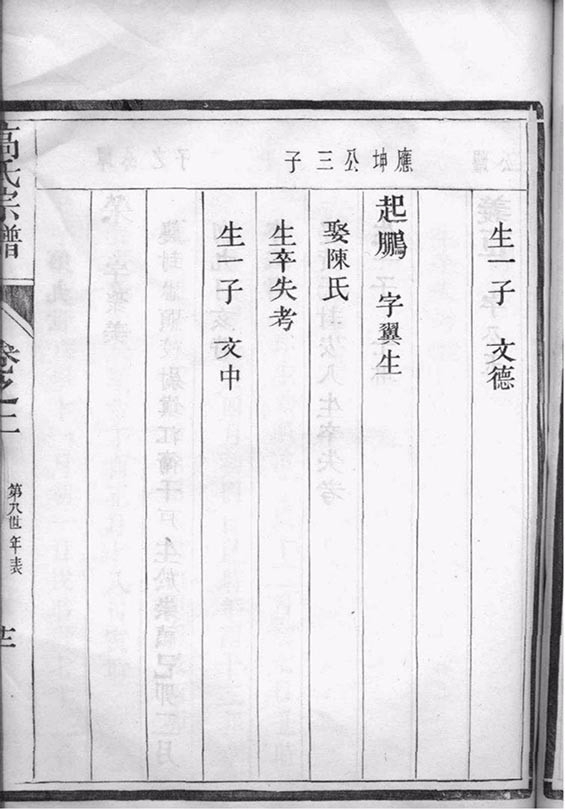 生一子 文德
應坤公三子
起鵬 字翼生
娶陳氏
生卒失考
生一子 文中
高氏宗譜
卷之二
第九世年表